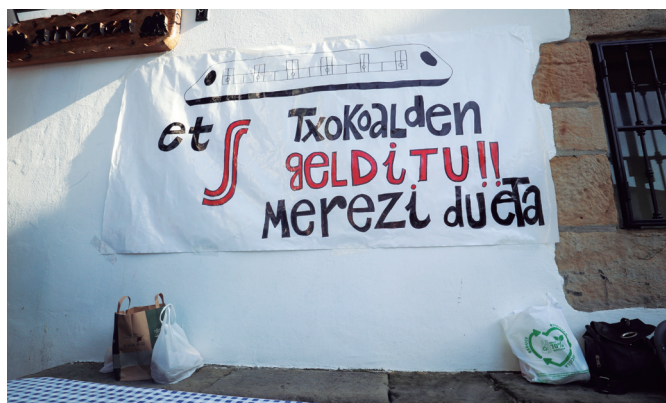 et S Txokoalden
gELDiTU!!
Merezi dueta